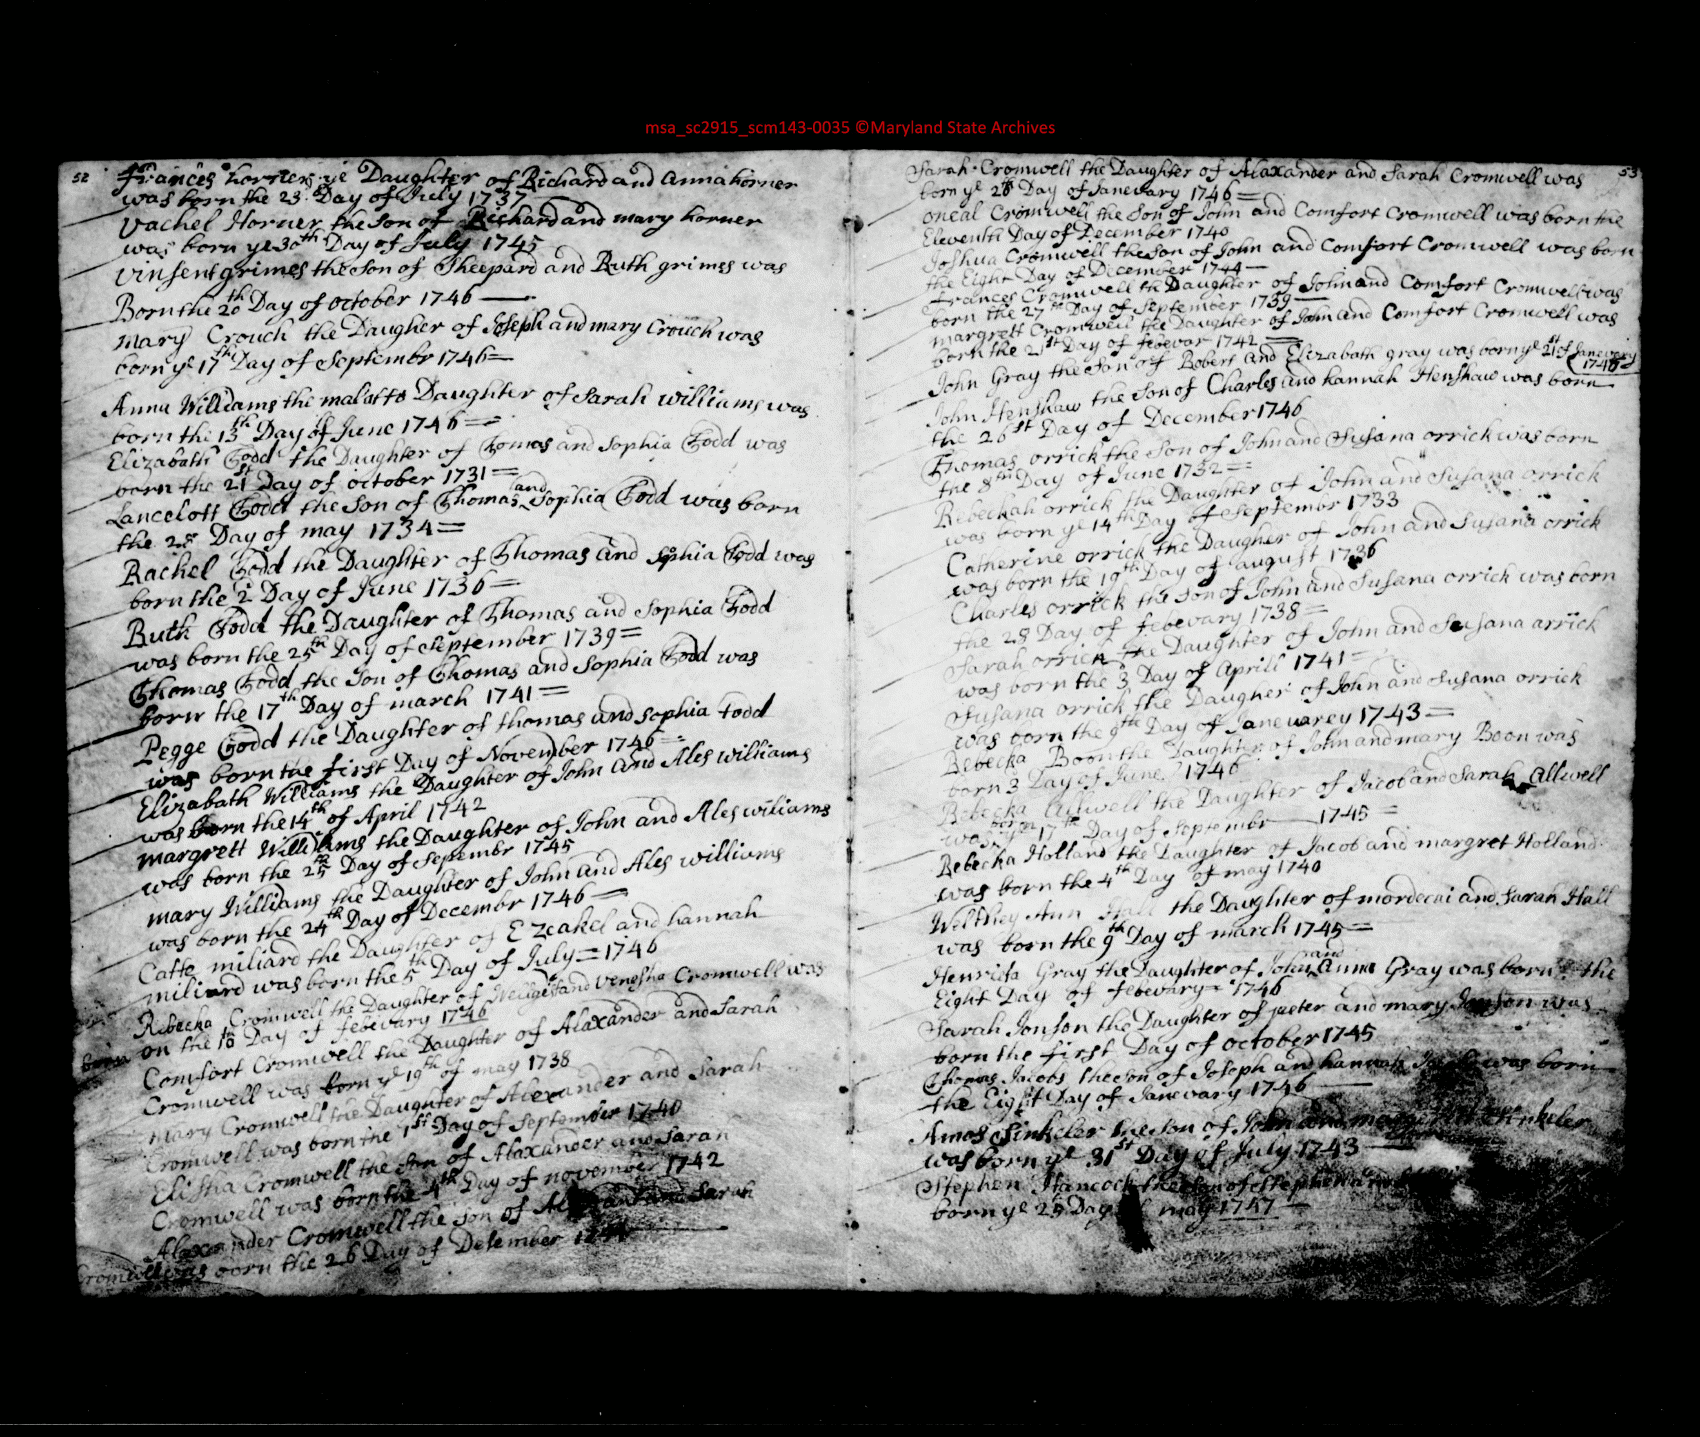 msa_sc2915_scm143-0035 ©Maryland State Archives
52
Frances horner ye Daughter of Richard and Anna horner
was born the 23 Day of July 1737
Vachel Horner the Son of Richard and mary horner
was born ye 30th Day of July 1745
Vinsent grimes the Son of Sheepard and Ruth grimes was
Born the 20th Day of october 1746
Mary Crouch the Daugher of Joseph and mary Crouch was
born ye 17th Day of Septembr 1746=
Anna Williams the malato Daughter of Sarah williams was
born the 13th Day of June 1746=
Elizabath Todd the Daughter of Thomas and Sophia Todd was
born the 21st Day of october 1731=
Lancelott Todd the Son of Thomas and Sophia Todd was born
the 28 Day of may 1734=
Rachel Todd the Daughter of Thomas and Sophia Todd was
born the 2 Day of June 1736=
Ruth Todd the Daughter of Thomas and Sophia Todd
was born the 25th Day of September 1739=
Thomas Todd the Son of Thomas and Sophia Todd was
born the 17th Day of march 1741=
Pegge Todd the Daughter of thomas and sophia todd
was born the first Day of November 1746=
Elizabath Williams the Daughter of John and Ales williams
was born the 14th of April 1742
margrett Williams the Daughter of John and Ales wiliams
was born the 25th Day of Sepembr 1745
mary Williams the Daughter of John and Ales williams
was born the 24th Day of Decembr 1746=
Catte miliard the Daughter of Ezeakel and hannah
miliard was born the 5th Day of July=1746
Rebecka Cromwell the Daughter of and Venesha Cromwell was
born on the 18 Day of febevary 1746
Comfort Cromwell the Daughter of Alaxander and Sarah
Cromwell was born ye 19th of may 1738
Mary Cromwell the Daughter of Alexander and Sarah
Cromwell was born the 1st Day of September 1740
Elisha Cromwell the Son of Alaxander and Sarah
Cromwell was born the 4th Day of november 1742
Alaxander Cromwell the Son of and Sarah
Cromwell was born the 26 Day of Desember
53
Sarah Cromwell the Daughter of Alaxander and Sarah Cromwell was
born ye 28 Day of Janevary 1746=
oneal Cromwell the Son of John and Comfort Cromwell was born the
Eleventh Day of December 1740
Joshua Cromwell the Son of John and Comfort Cromwell was born
the Eight Day of December 1744
Frances Cromwell the Daughter of John and Comfort Cromwell was
born the 27th Day of September 1739
margrett Cromwell the Daughter of John and Comfort Cromwell was
born the 21st Day of febevar 1742=
John Gray the Son of Robert and Elizabath gray was born ye 21st of Janevery
1746
John Henshaw the Son of Charles and hannah Henshaw was born
the 26st Day of December 1746
Thomas orrick the Son of John and Susana orrick was born
the 8th Day of June 1732=
Rebeckah orrick the Daughter of John and Susana orrick
was born ye 14th Day of Septembr 1733
Catherine orrick the Daugher of John and Susana orrick
was born the 19th Day of august 1736
Charles orrick the Son of John and Susana orrick was born
the 28 Day of febevary 1738=
Sarah orrick the Daughter of John and Susana arrick
was born the 3 Day of Aprill 1741=
Susana orrick the Daugher of John and Susana orrick
was born the 9th Day of Janeuarey 1743=
Rebecka Boon the Daughter of John and mary Boon was
born 3 Day of June 1746
Rebecka Allwell the Daughter of Jacob and Sarah Allwell
was born ye 17th Day of Septembr 1745=
Rebecka Holland the Daughter of Jacob and margret Holland
was born the 4th Day of may 1740
Wilthey Ann Hall the Daughter of mordecai and Sarah Hall
was born the 9th Day of march 1745=
Henrieta Gray the Daughter of John and Anna Gray was born the
Eight Day of febevary= 1746
Sarah Jonson the Daughter of peter and mary Jonson was
born the first Day of october 1745
Thomas Jacobs the Son of Joseph and hannah was born
the Eight Day of Janevary 1746
Amos Sinkeler the Son of John and Sinkeler
was born ye 31st Day of July 1743
Stephen Hancock the Son of Stephen
born ye 25 Day may 1747